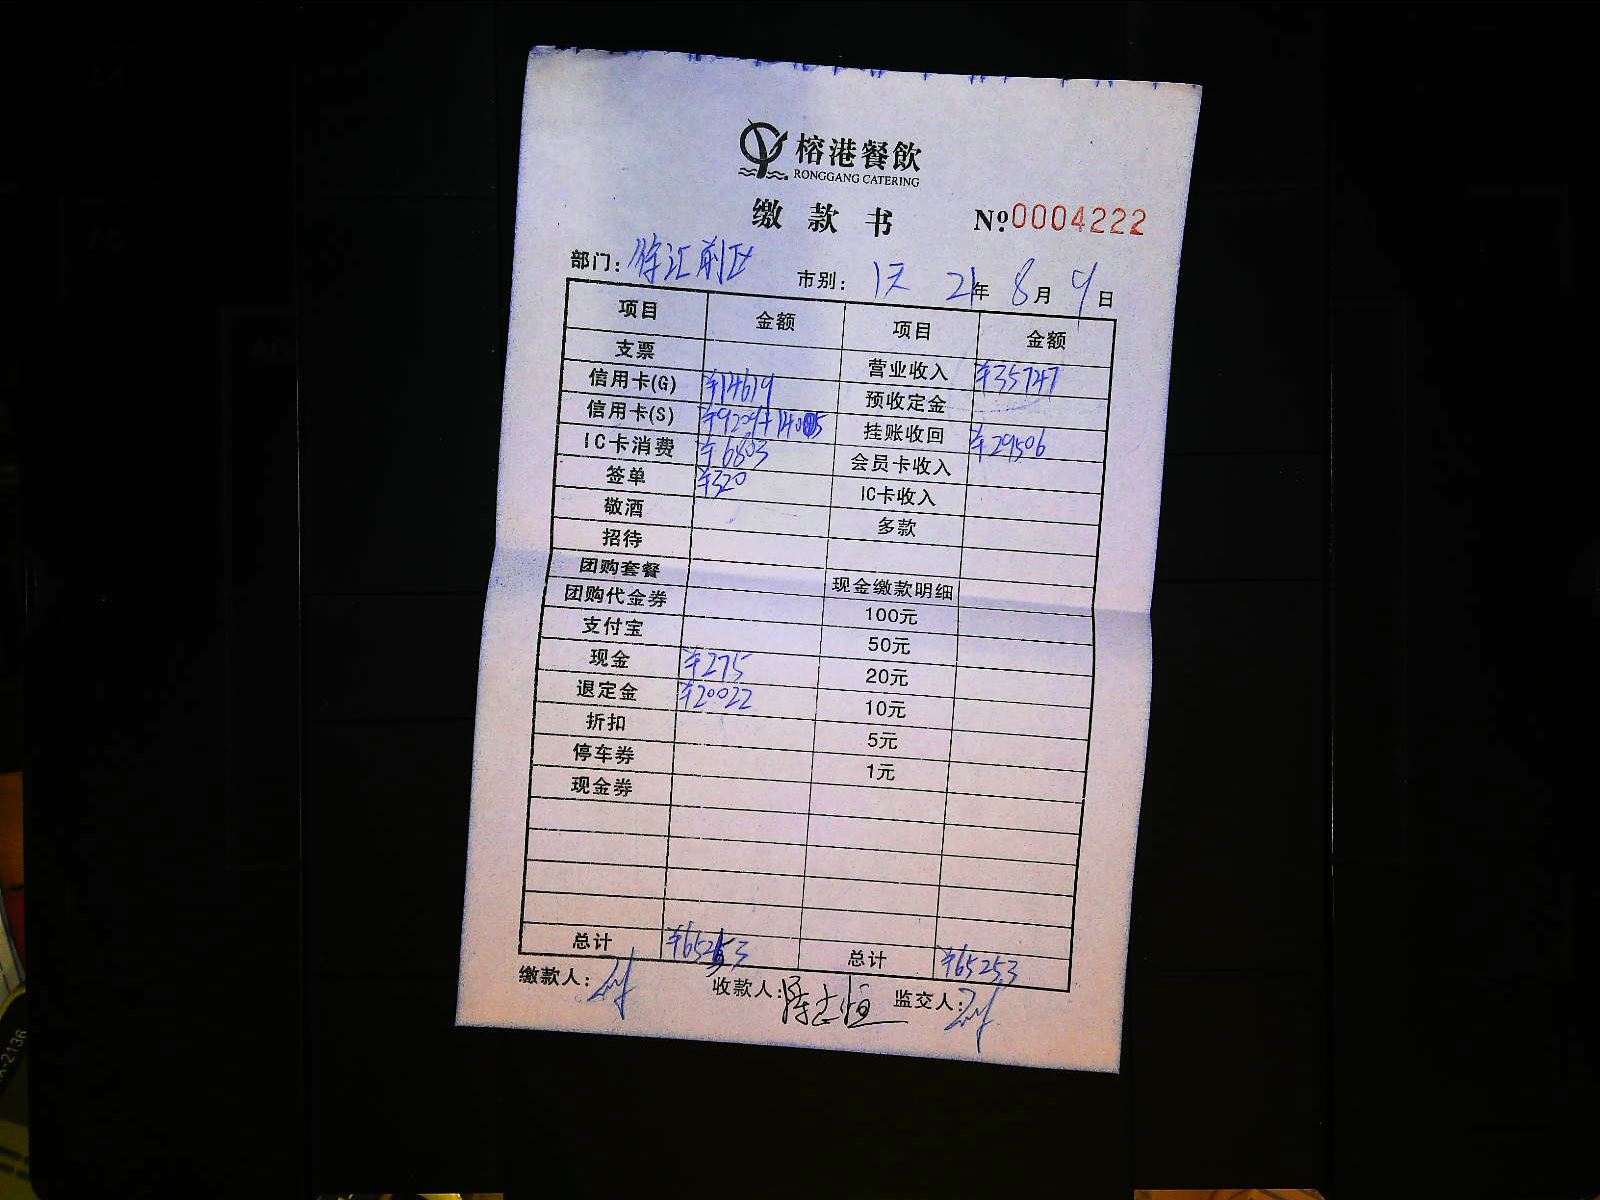 榕港餐飲
RONGGANG CATERING
缴款书 №0004222
部门: 徐汇前区 市别: 1天 21年 8月 9日
项目 金额 项目 金额
支票 营业收入 ¥35747
信用卡(G) ¥14619 预收定金
信用卡(S) ¥9209+14005 挂账收回 ¥29506
IC卡消费 ¥6803 会员卡收入
签单 ¥320 IC卡收入
敬酒 多款
招待
团购套餐 现金缴款明细
团购代金券 100元
支付宝 50元
现金 ¥275 20元
退定金 ¥20022 10元
折扣 5元
停车券 1元
现金券
总计 ¥65253 总计 ¥65253
缴款人: 收款人: 监交人: